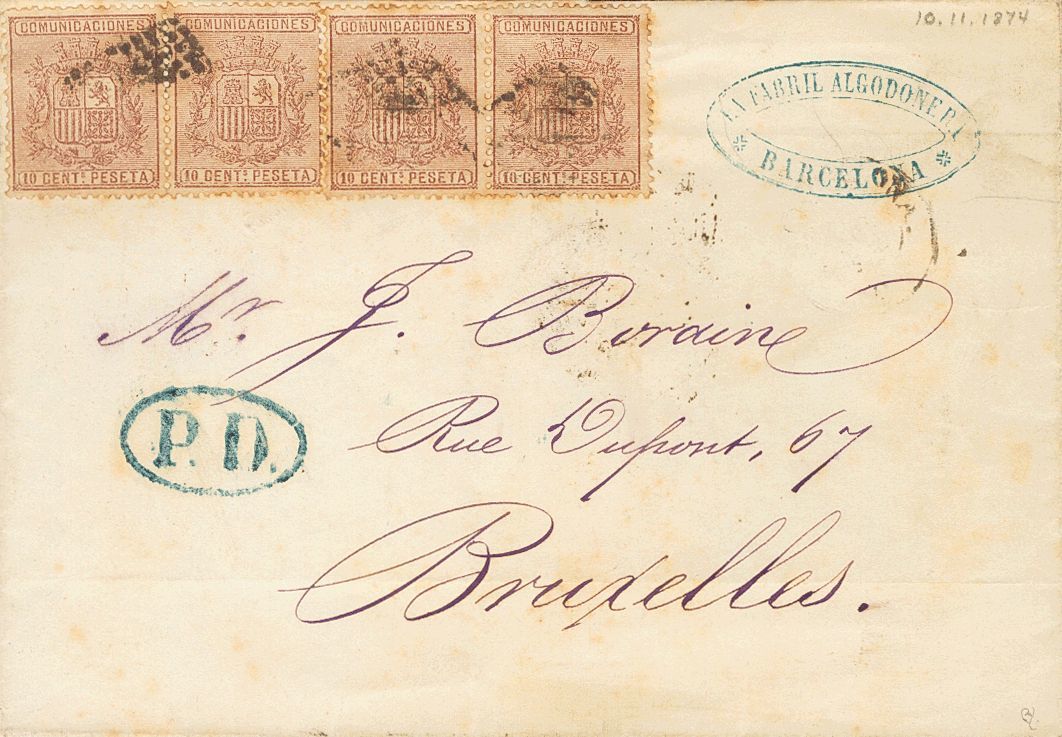 COMUNICACIONES COMUNICACIONES COMUNICACIONES COMUNICACIONES
10 CENT.s PESETA 10 CENT.s PESETA 10 CENT.s PESETA 10 CENT.s PESETA
10.11.1874
LA FABRIL ALGODONERA
* BARCELONA *
Mr. J. Bordine
P.D.
Rue Dupont, 67
Bruxelles.